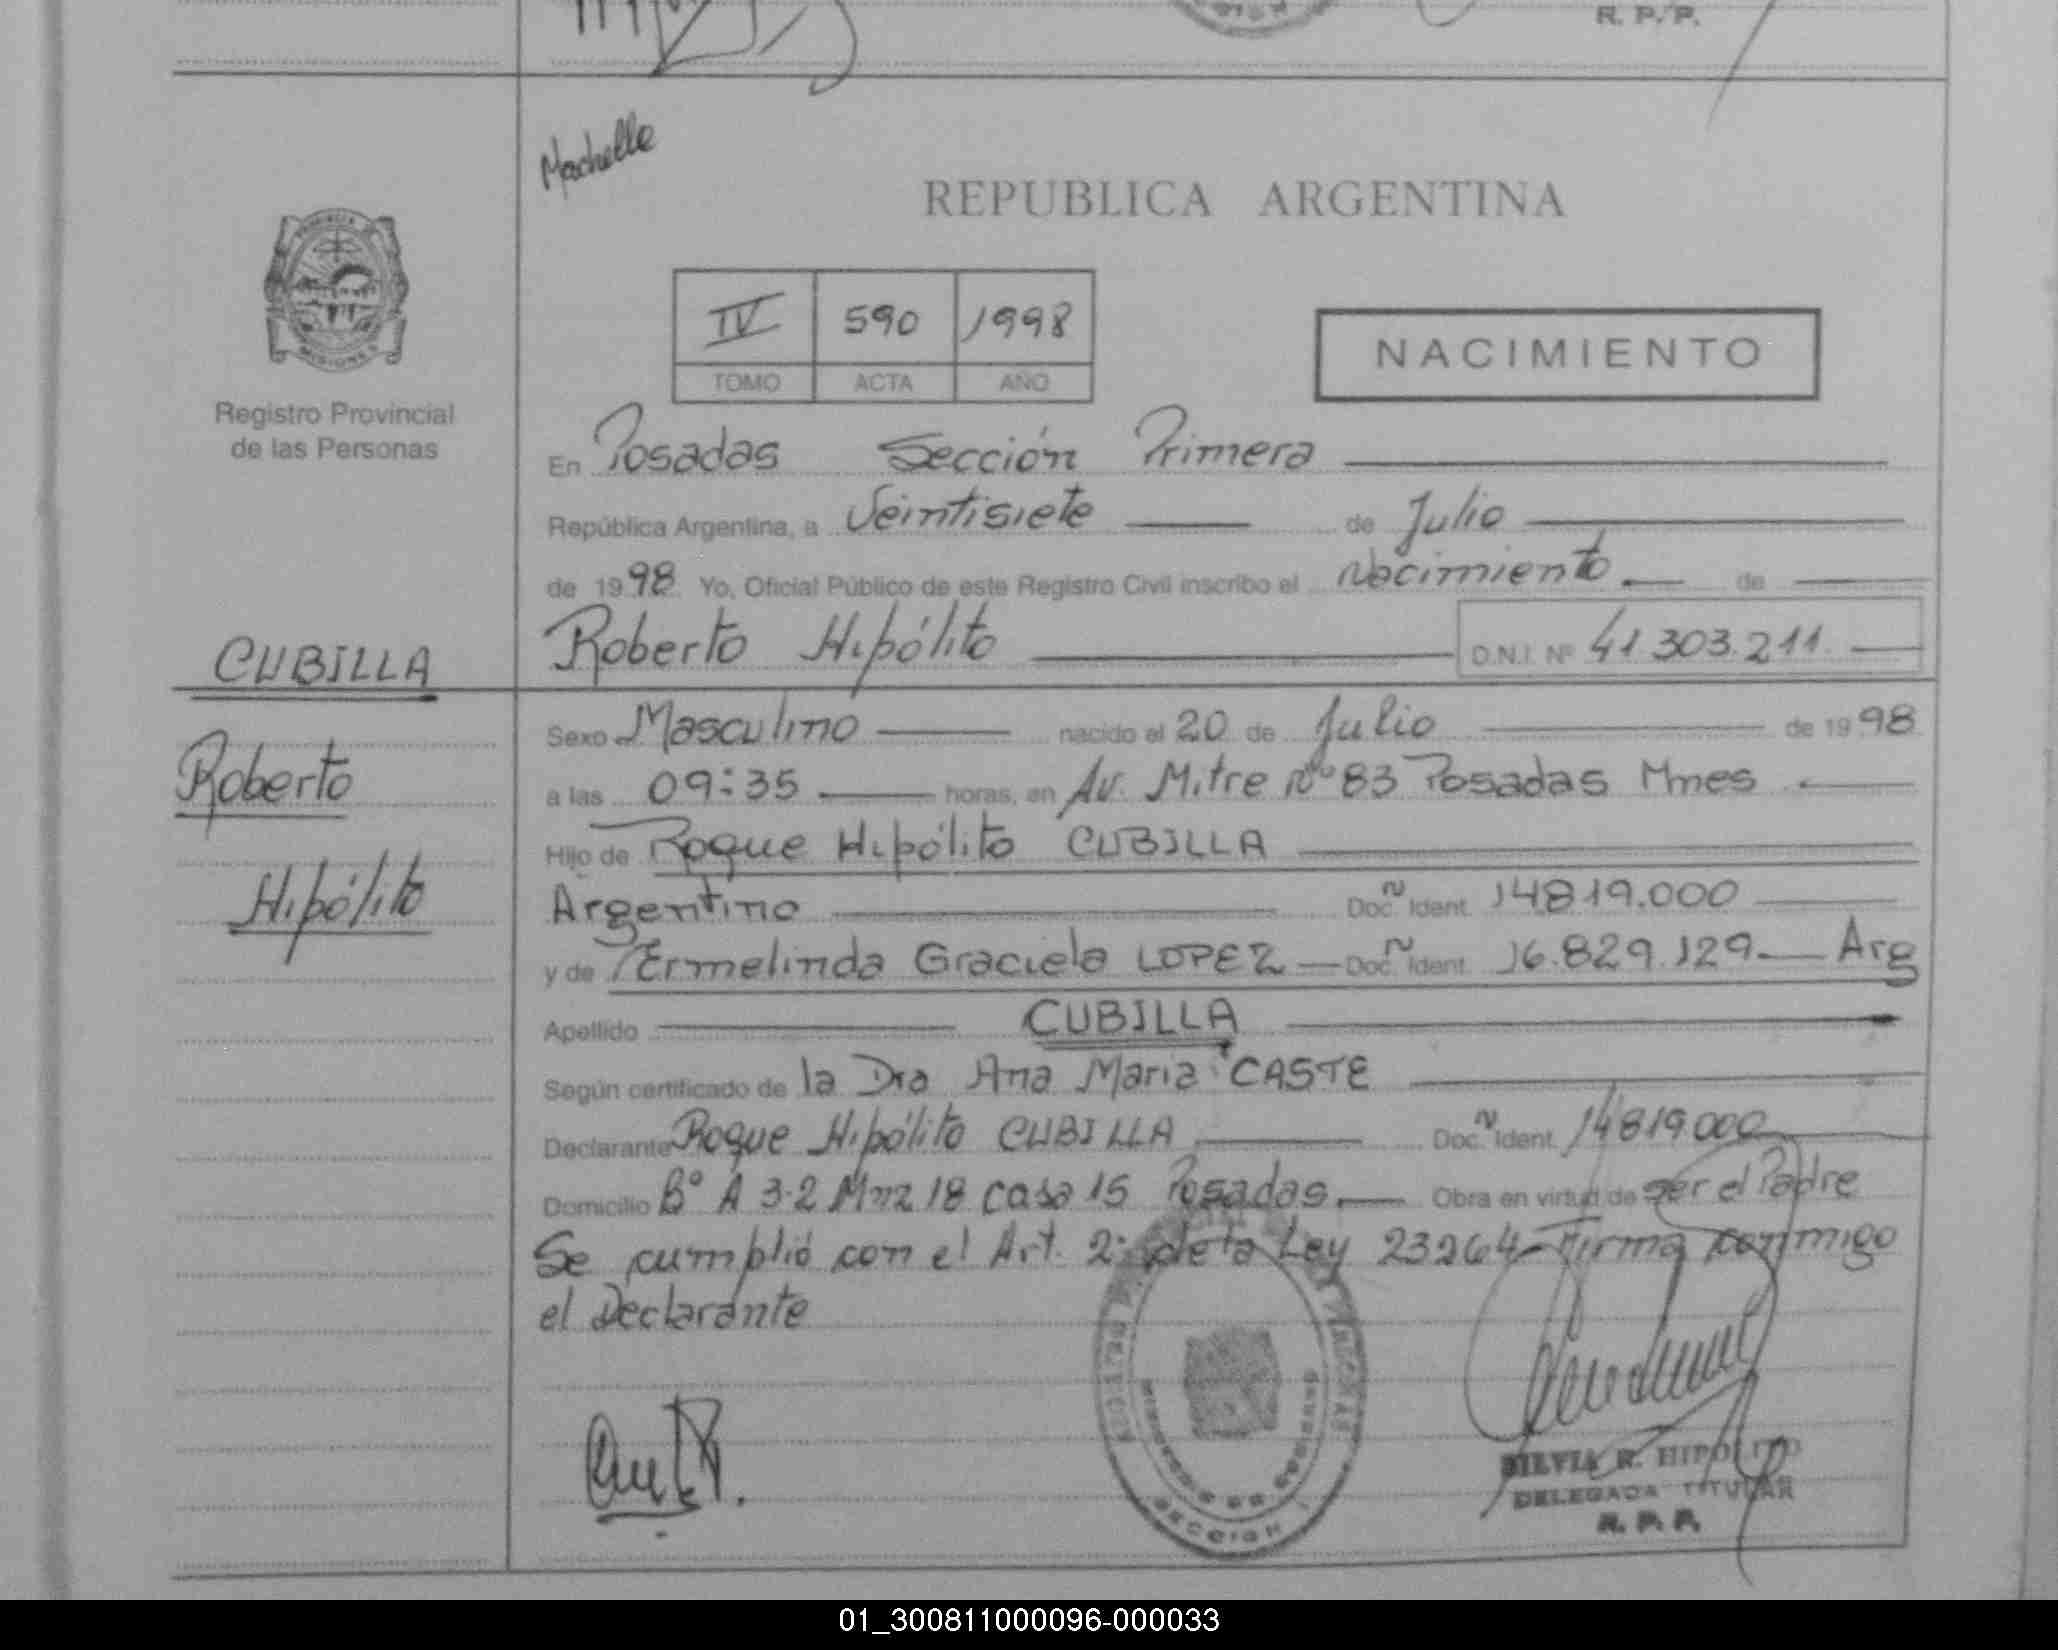 R. P. P.
Machelle
REPUBLICA ARGENTINA
PROVINCIA DE
MISIONES
Registro Provincial
de las Personas
IV 590 1998
TOMO ACTA AÑO
NACIMIENTO
En Posadas Sección Primera
República Argentina, a Veintisiete de Julio
de 1998 Yo, Oficial Público de este Registro Civil inscribo el Nacimiento de
CUBILLA
Roberto Hipólito D.N.I. Nº 41.303.211
Roberto
Hipólito
Sexo Masculino nacido el 20 de Julio de 1998
a las 09:35 horas, en Av. Mitre Nº 83 Posadas Mnes
Hijo de Roque Hipólito CUBILLA
Argentino Doc. Ident. 14819.000
y de Ermelinda Graciela LOPEZ Doc. Ident. 16.829.129 Arg
Apellido CUBILLA
Según certificado de la Dra Ana Maria CASTE
Declarante Roque Hipólito CUBILLA Doc. Ident. 14819000
Domicilio Bº A 3-2 Mnz 18 casa 15 Posadas Obra en virtud de ser el Padre
Se cumplió con el Art. 2º de la Ley 23264 Firma conmigo
el Declarante
SECCION
SILVIA R. HIPOLITO
DELEGADA TITULAR
R. P. P.
01_300811000096-000033